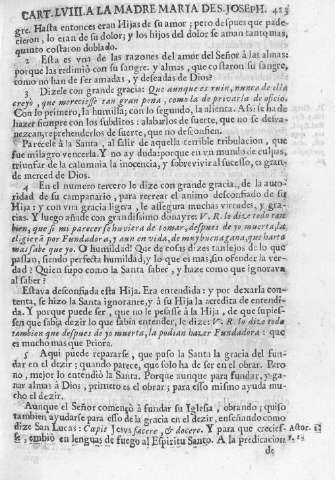 CART.LVIII.A LA MADRE MARIA DE S. JOSEPH. 423
gre. Hasta entonces eran Hijas de su amor; pero despues que pade-
cieron, lo eran de su dolor; y los hijos del dolor se aman tanto mas,
quanto costaron doblado.
2 Esta es vna de las razones del amor del Señor à las almas:
porque las redimiò con su sangre, y almas, que costaron su sangre,
como no han de ser amadas, y deseadas de Dios?
3 Dizele con grande gracia: Que aunque es ruin, nunca de ella
creyò, que mereciesse tan gran pena, como la de privarla de oficio.
Con lo primero, la humilla; con lo segundo, la alienta. Assi se ha de
hazer siempre con los subditos: alabarlos de suerte, que no se desva-
nezcan; reprehenderlos de suerte, que no desconfien.
Parecele à la Santa, al salir de aquella terrible tribulacion, que
fue milagro vencerla. Y no ay duda: porque en vn mundo de culpas,
triunfar de la calumnia la inocencia, y sobrevivir al sucesso, es gran-
de merced de Dios.
4 En el numero tercero le dize con grande gracia, de la auto-
ridad de su campanario, para recrear el animo desconfiado de su
Hija: y con vna gracia ligera, le assegura muchas virtudes, y gra-
cias. Y luego añade con grandissimo donayre: V. R. lo dize todo tan
bien, que si mi parecer se huviera de tomar, despues de yo muerta, la
eligiera por Fundadora, y aun en vida, de muy buena gana, que harto
mas sabe que yo. O humildad! Que de cosas dizes tan lejos de lo que
passan, siendo perfecta humildad, y lo que es mas, sin ofender la ver-
dad! Quien supo como la Santa saber, y haze como que ignorava
al saber?
Estava desconfiada esta Hija. Era entendida: y por dexarla con-
tenta, se hizo la Santa ignorante, y à su Hija la acredita de entendi-
da. Y porque puede ser, que no le pesasse à la Hija, de que supies-
sen que sabia dezir lo que sabia entender, le dize: V. R. lo dize todo
tambien que despues de yo muerta, la podian hazer Fundadora: que
es mucho mas que Priora.
5 Aqui puede repararse, que puso la Santa la gracia del fun-
dar en el dezir; quando parece, que solo ha de ser en el obrar. Pero
no, mejor lo entendiò la Santa. Porque aunque para fundar, y ga-
nar almas à Dios, primero es el obrar; para esso mismo ayuda mu-
cho el dezir.
Aunque el Señor començò à fundar su Iglesia, obrando; quiso
tambien ayudarse para esso de la gracia en el dezir, enseñando como
dize San Lucas: Cæpit Jesus facere, & docere. Y para que crecies-
Actor.
se, embiò en lenguas de fuego al Espiritu Santo. A la predicacion
de